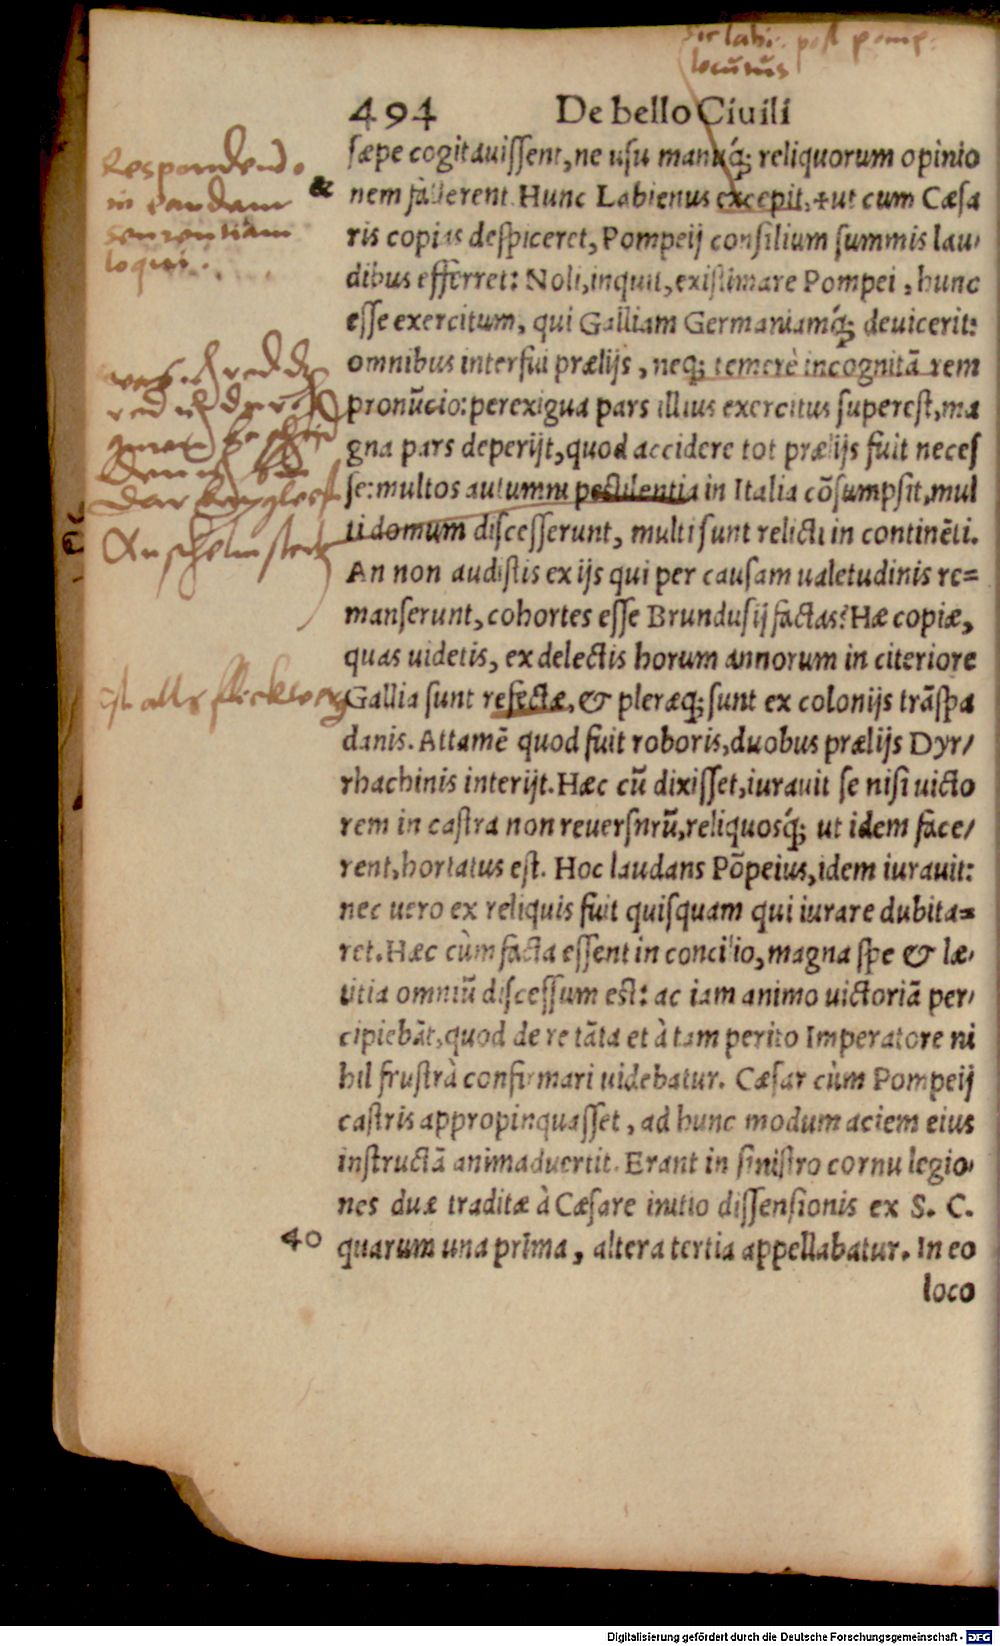 post pomp:
locutus
494 De bello Ciuili
sæpe cogitauissent, ne usu manuq́; reliquorum opinio
nem fallerent. Hunc Labienus excepit, & ut cum Cæsa
ris copias despiceret, Pompeij consilium summis lau-
dibus efferret: Noli, inquit, existimare Pompei, hunc
esse exercitum, qui Galliam Germaniamq́; deuicerit:
omnibus interfui prælijs, neq; temerè incognitã rem
pronũcio: perexigua pars illius exercitus superest, ma
gna pars deperijt, quod accidere tot prælijs fuit neces
se: multos autumni pestilentia in Italia cõsumpsit, mul
ti domum discesserunt, multi sunt relicti in continẽti.
An non audistis ex ijs qui per causam ualetudinis re=
manserunt, cohortes esse Brundusij factas? Hæ copiæ,
quas uidetis, ex delectis horum annorum in citeriore
Gallia sunt refectæ, & pleræq; sunt ex colonijs trãspa
danis. Attamẽ quod fuit roboris, duobus prælijs Dyr/
rhachinis interijt. Hæc cũ dixisset, iurauit se nisi uicto
rem in castra non reuersnrũ, reliquosq́; ut idem face/
rent, hortatus est. Hoc laudans Põpeius, idem iurauit:
nec uero ex reliquis fuit quisquam qui iurare dubita=
ret. Hæc cùm facta essent in concilio, magna spe & læ-
titia omniũ discessum est: ac iam animo uictoriã per-
cipiebãt, quod de re tãta et à tam perito Imperatore ni
hil frustrà confirmari uidebatur. Cæsar cùm Pompeij
castris appropinquasset, ad hunc modum aciem eius
instructã animaduertit. Erant in sinistro cornu legio-
nes duæ traditæ à Cæsare initio dissensionis ex S. C.
40 quarum una prima, altera tertia appellabatur. In eo
loco
Respondendo
in eandem
sententiam
loqui.
ist alls flickwerg
Digitalisierung gefördert durch die Deutsche Forschungsgemeinschaft - DFG